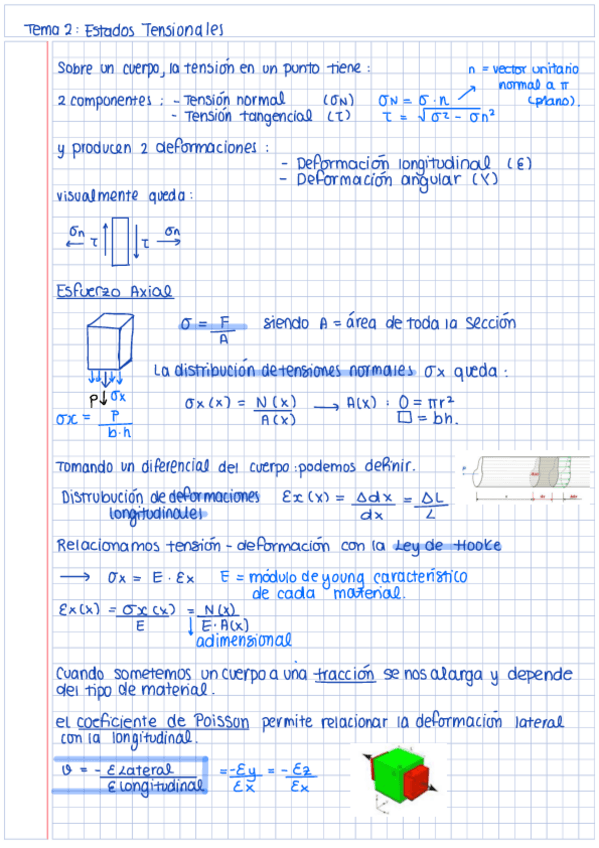 Tema 2: Estados Tensionales
Sobre un cuerpo, la tensión en un punto tiene:
n = vector unitario
normal a π
(plano).
2 componentes : - Tensión normal (σN) σN = σ · n
- Tensión tangencial (τ) τ = √σ² - σn²
y producen 2 deformaciones :
- Deformación longitudinal (ε)
- Deformación angular (γ)
visualmente queda:
σn τ τ σn
Esfuerzo Axial
σ = F/A siendo A = área de toda la sección
La distribución de tensiones normales σx queda:
P σx
σx = P/b·h
σx(x) = N(x)/A(x) → A(x) : O = πr²
□ = bh.
Tomando un diferencial del cuerpo : podemos definir.
Distrubución de deformaciones longitudinales εx(x) = Δdx/dx = ΔL/L
Relacionamos tensión - deformación con la Ley de Hooke
→ σx = E · εx E = módulo de young característico
de cada material.
εx(x) = σx(x)/E = N(x)/E·A(x)
↓ adimensional
Cuando sometemos un cuerpo a una tracción se nos alarga y depende
del tipo de material.
el coeficiente de Poisson permite relacionar la deformación lateral
con la longitudinal.
ϑ = - ε Lateral/ε Longitudinal = -εy/εx = -εz/εx